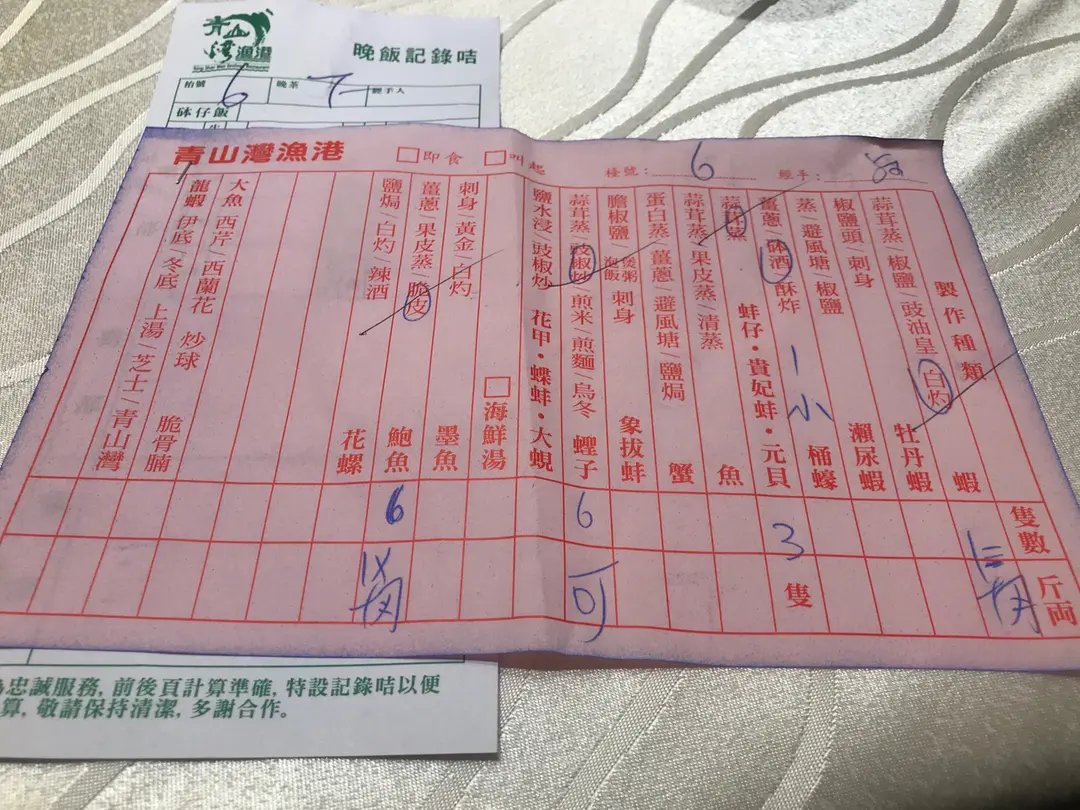 青山灣漁港
晚飯記錄咭
枱號 6
晚茶 7
經手人
砵仔飯
青山灣漁港
□即食 □叫起 檯號: 6 經手:
製作種類
隻數
斤兩
蒜茸蒸/椒鹽/豉油皇/白灼 蝦
牡丹蝦
椒鹽頭/刺身 瀨尿蝦
蒸/避風塘/椒鹽 1小 桶蠔
薑蔥/砵酒/酥炸
蚌仔·貴妃蚌·元貝 3 隻
蒜茸蒸
蒜茸蒸/果皮蒸/清蒸 魚
蛋白蒸/薑蔥/避風塘/鹽焗 蟹
膽椒鹽/泡飯 煲粥/刺身 象拔蚌
蒜茸蒸/豉椒炒/煎米/煎麵/烏冬 蟶子 6 可
鹽水浸/豉椒炒 花甲·蝶蚌·大蜆
□海鮮湯
刺身/黃金/白灼 墨魚
薑蔥/果皮蒸/脆皮 鮑魚 6
鹽焗/白灼/辣酒 花螺
大魚 西芹/西蘭花 炒球 脆骨腩
龍蝦 伊底/冬底 上湯/芝士/青山灣
忠誠服務, 前後頁計算準確, 特設記錄咭以便
算, 敬請保持清潔, 多謝合作。